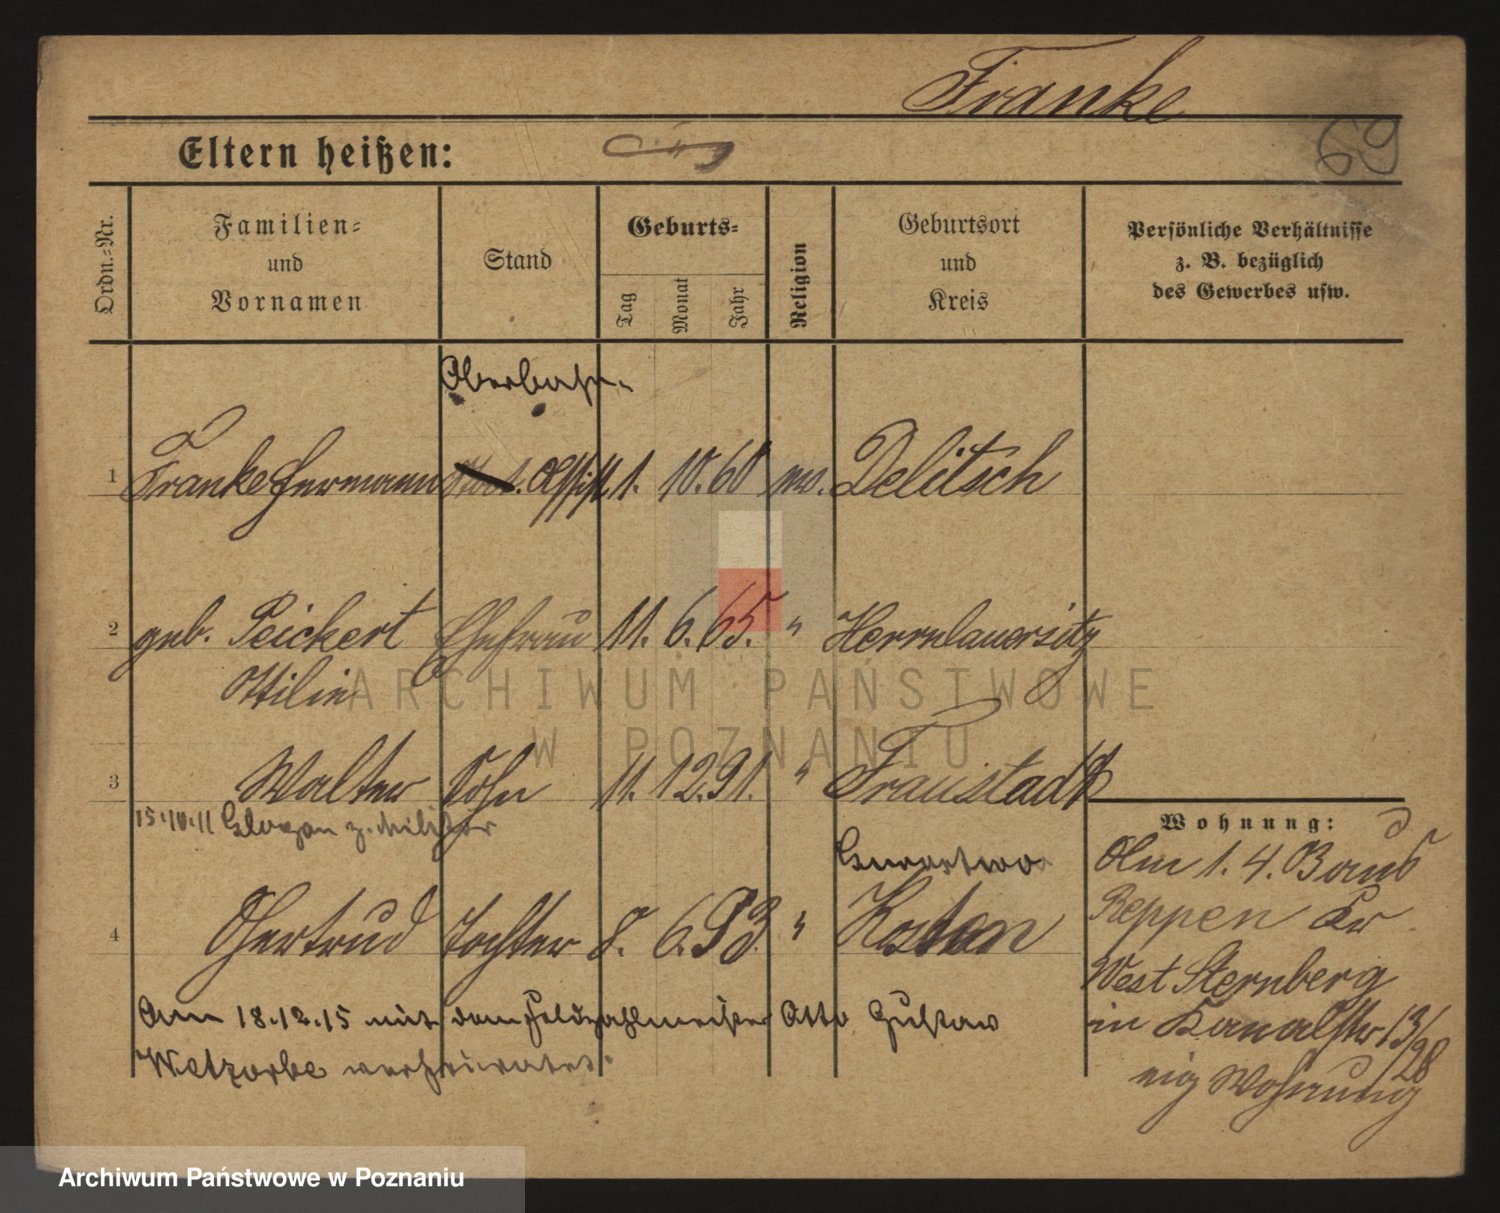 Franke
69
Eltern heißen:
Ordn.-Nr.
Familien-
und
Vornamen
Stand
Geburts-
Tag
Monat
Jahr
Religion
Geburtsort
und
Kreis
Persönliche Verhältnisse
z. B. bezüglich
des Gewerbes usw.
Oberbahn-
1 Franke Hermann Assist. 1. 10. 60 ev. Delitsch
2 geb. Peickert Ehefrau 11. 6. 65. " Herrnlauersitz
Ottilie
3 Walter Sohn 11. 12. 91. " Fraustadt
15.10.11 Glogau z. Militär
4 Gertrud Tochter 8. 6. 93. " Kosten
Am 18.12.15 mit dem Feldzahlmeister Otto Gustav
Wetzorke verheiratet.
Wohnung:
Am 1. 4. 13 aus
Reppen Kr
West Sternberg
in Kanalstr 13/
28
eig Wohnung
ARCHIWUM PAŃSTWOWE
W POZNANIU
Archiwum Państwowe w Poznaniu